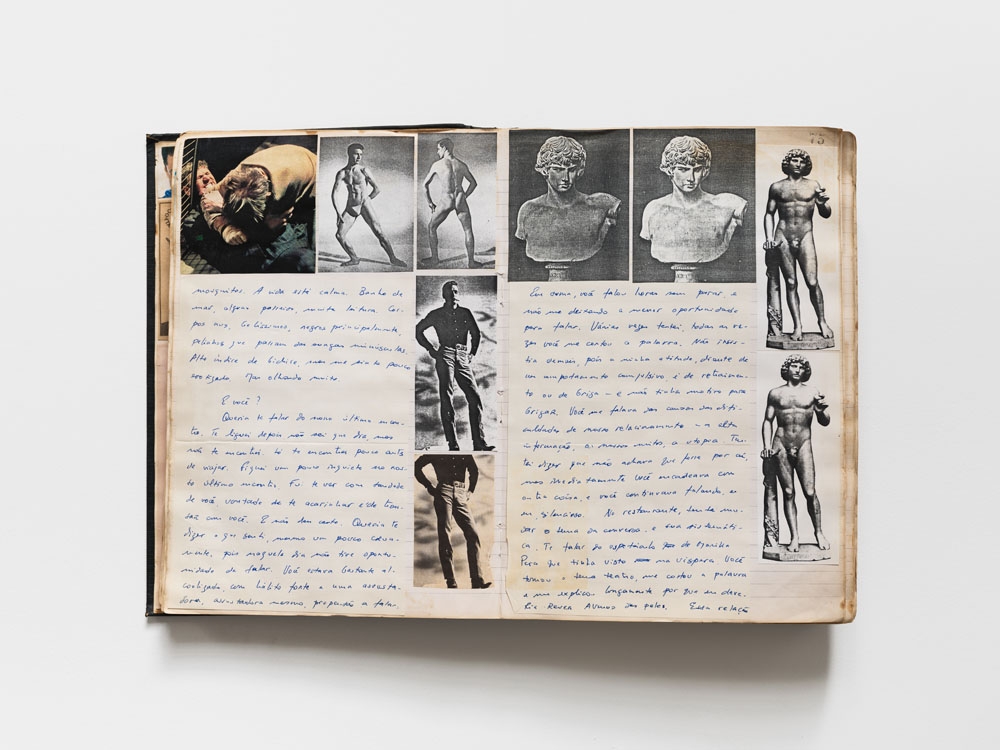 mosquitos. A vida está calma. Banho de
mar, alguns passeios, muita leitura. Cor-
pos nus, belíssimos, negros principalmente,
pelinhos que passam das sungas minúsculas.
Alto índice de bichice, mas me sinto pouco
motivado. Mas olhando muito.
E você?
Queria te falar do nosso último encon-
tro. Te liguei depois não sei que dia, mas
não te encontrei. Só te encontrei pouco antes
de viajar. Fiquei um pouco inquieto no nos-
so último encontro. Fui te ver com saudade
de você, vontade de te acarinhar e de tran-
sar com você. E não deu certo. Queria te
dizer o que senti, mesmo um pouco crua-
mente, pois naquele dia não tive oportu-
nidade de falar. Você estava bastante al-
coolizado, com hálito forte e uma assusta-
dora, assustadora mesmo, propensão a falar.
75
Em suma, você falou horas sem parar, e
não me deixando a menor oportunidade
para falar. Várias vezes tentei, todas as ve-
zes você me cortou a palavra. Não insis-
tia demais, pois a minha atitude, diante de
um comportamento compulsivo, é de retraimen-
to ou de briga - e não tinha motivo para
brigar. Você me falava das causas das difi-
culdades de nosso relacionamento - a alta
informação, os nossos muitos, a utopia. Ten-
tei dizer que não achava que fosse por aí,
mas imediatamente você encadeava com
outra coisa, e você continuava falando, e
eu, silencioso. No restaurante, tentei mu-
dar o tema da conversa, e sua sistemáti-
ca. Te falei do espetáculo de Marilia
Pera que tinha visto na véspera. Você
tomou o tema teatro, me cortou a palavra
e me explicou longamente por que eu deve-
ria rever Avanço das peles. Essa relaçã